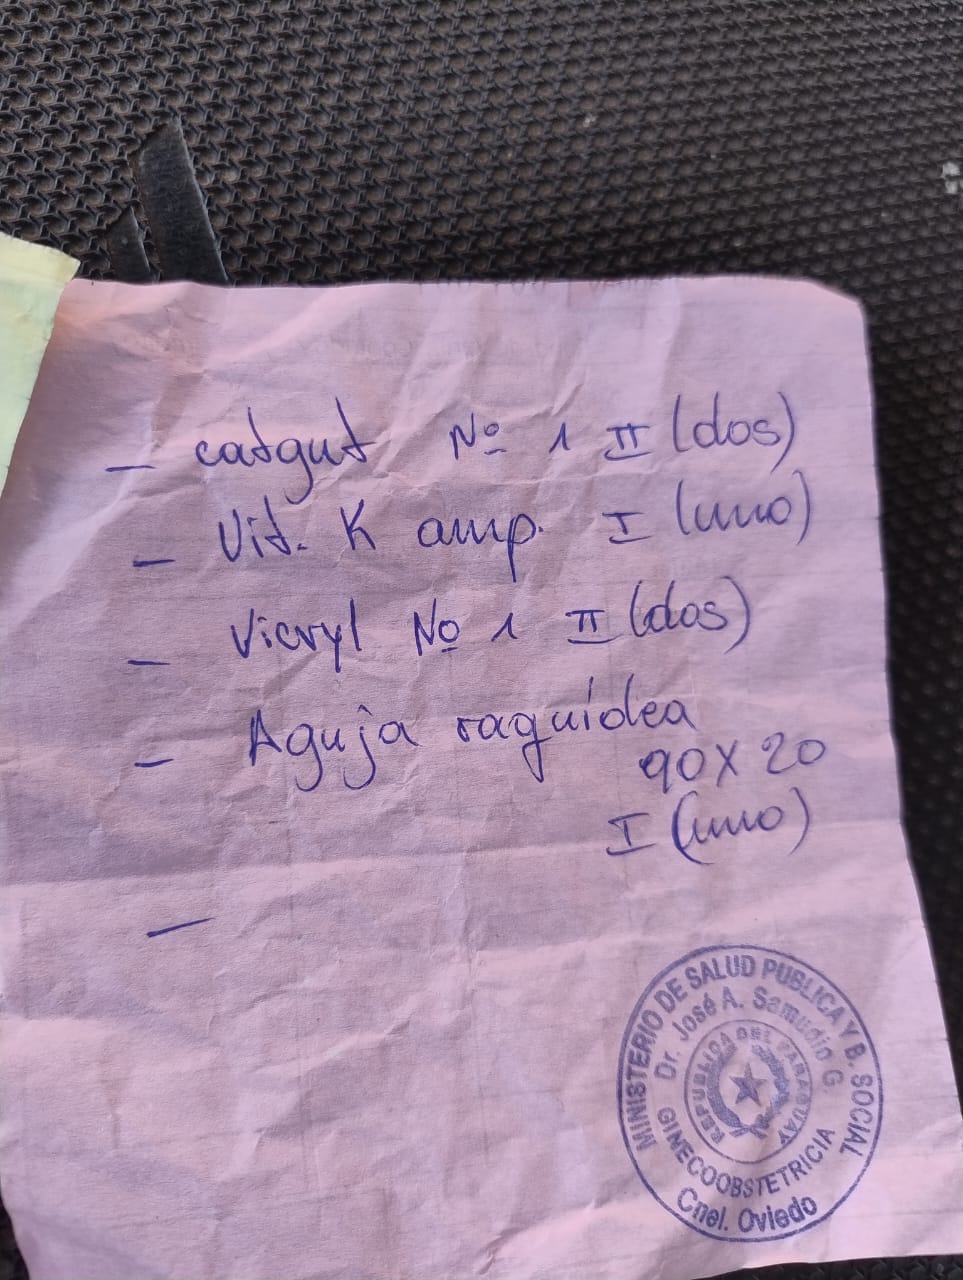 - catgut Nº 1 II (dos)
- Vit. K amp. I (uno)
- Vicryl Nº 1 II (dos)
- Aguja raquídea
90 X 20
I (uno)
-
MINISTERIO DE SALUD PUBLICA Y B. SOCIAL
Dr. José A. Samudio G.
REPUBLICA DEL PARAGUAY
GINECOOBSTETRICIA
Cnel. Oviedo